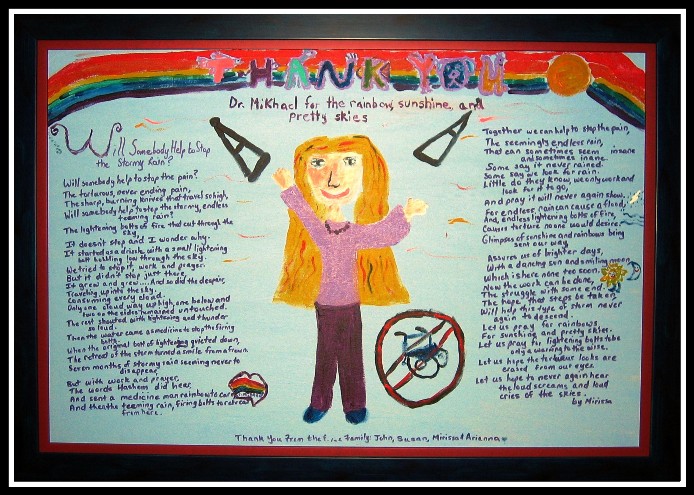 THANK YOU
Dr. Mikhael for the rainbow, sunshine, and
pretty skies
Will Somebody Help to Stop
the Stormy Rain?
Will somebody help to stop the pain?
The torturous, never ending pain,
The sharp, burning knives that travel so high,
Will somebody help to stop the stormy, endless
teeming rain?
The lightening bolts of fire that cut through the
sky,
It doesn't stop and I wonder why.
It started as a drizzle, with a small lightening
bolt bubbling low through the sky.
We tried to stop it, work and prayer.
But it didn't stop just there
It grew and grew.... And so did the despair,
Traveling up into the sky.
Consuming every cloud.
Only one cloud, way up high, one below and
two on the sides, remained untouched.
The rest shouted with lightening and thunder
so loud.
Then the water came as medicine to stop the firing
bolts.
When the original bolt of lightening quieted down,
The retreat of the storm turned a smile from a frown.
Seven months of stormy raid seeming never to
disappear
But with work and prayer,
The words Hashem did hear,
And sent a medicine man rainbow to care
And then the teeming rain, firing bolts to retreat
from here.
Together we can help to stop the pain,
The seemingly endless rain,
That can sometimes seem insane
and sometimes inane.
Some say it never rained.
Some say we look for rain.
Little do they know, we only work and
look for it to go,
And pray it will never again show...
For endless rain can cause a flood,
And, endless lightening bolts of fire,
Causes torture no one would desire.
Glimpses of sunshine and rainbows being
sent our way,
Assures us of brighter days,
With a dancing sun and smiling moon
Which is here none too soon.
Now the work can be done,
The struggle with some end.
The hope, that steps be taken
Will help this type of storm never
again to descend.
Let us pray for rainbows
For sunshine and pretty skies.
Let us pray for lightening bolts to be
only a warning to the wise.
Let us hope the terrible looks are
erased from our eyes
Let us hope to never again hear
the loud screams and loud
cries of the skies.
by Mirissa
Thank You From the Family: John, Susan, Mirissa & Arianna